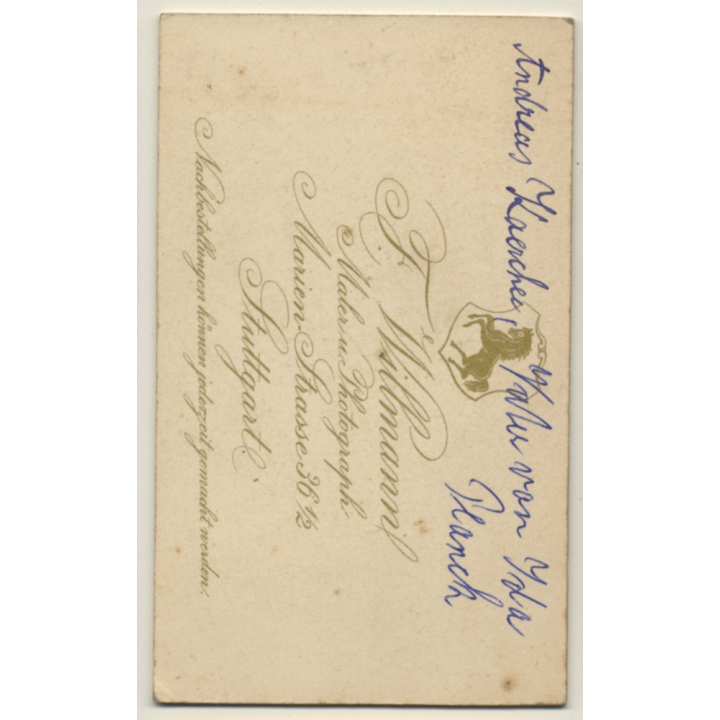 Andreas Kaercher, Vater von Ida
Planck
Fr. Willmann
Maler u. Photograph
Marien-Strasse 36 1/2
Stuttgart.
Nachbestellungen können jederzeit gemacht werden.